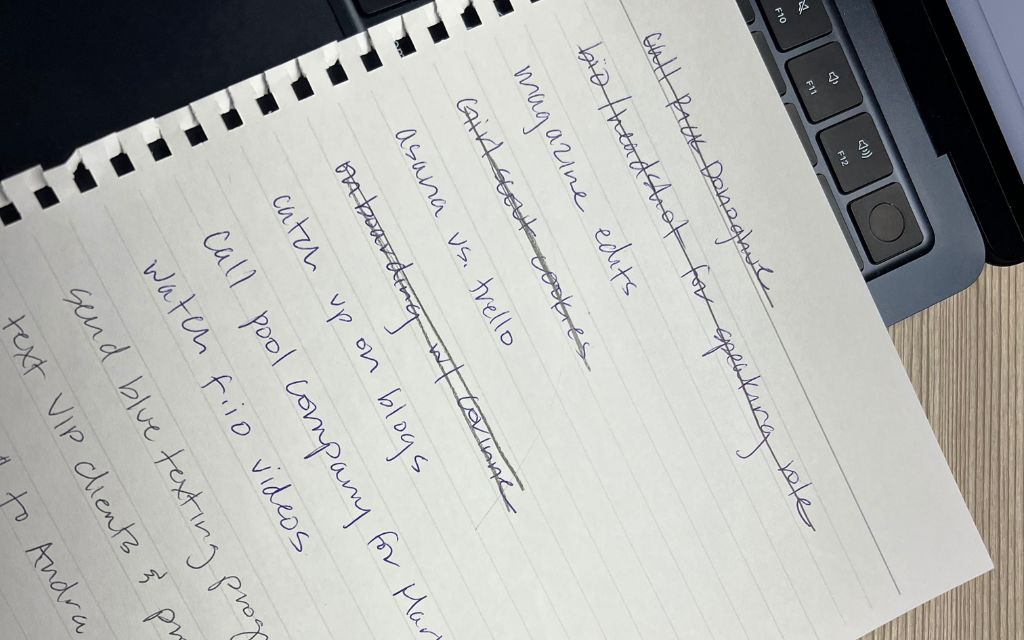 call Rick Donoghue
bio/headshot for speaking role
magazine edits
Girl scout cookies
asana vs. trello
onboarding w/ Corinne
catch up on blogs
call pool company for Mar
watch f.io videos
send blue texting prog
text VIP clients & pr
to Andra
F10
F11
F12